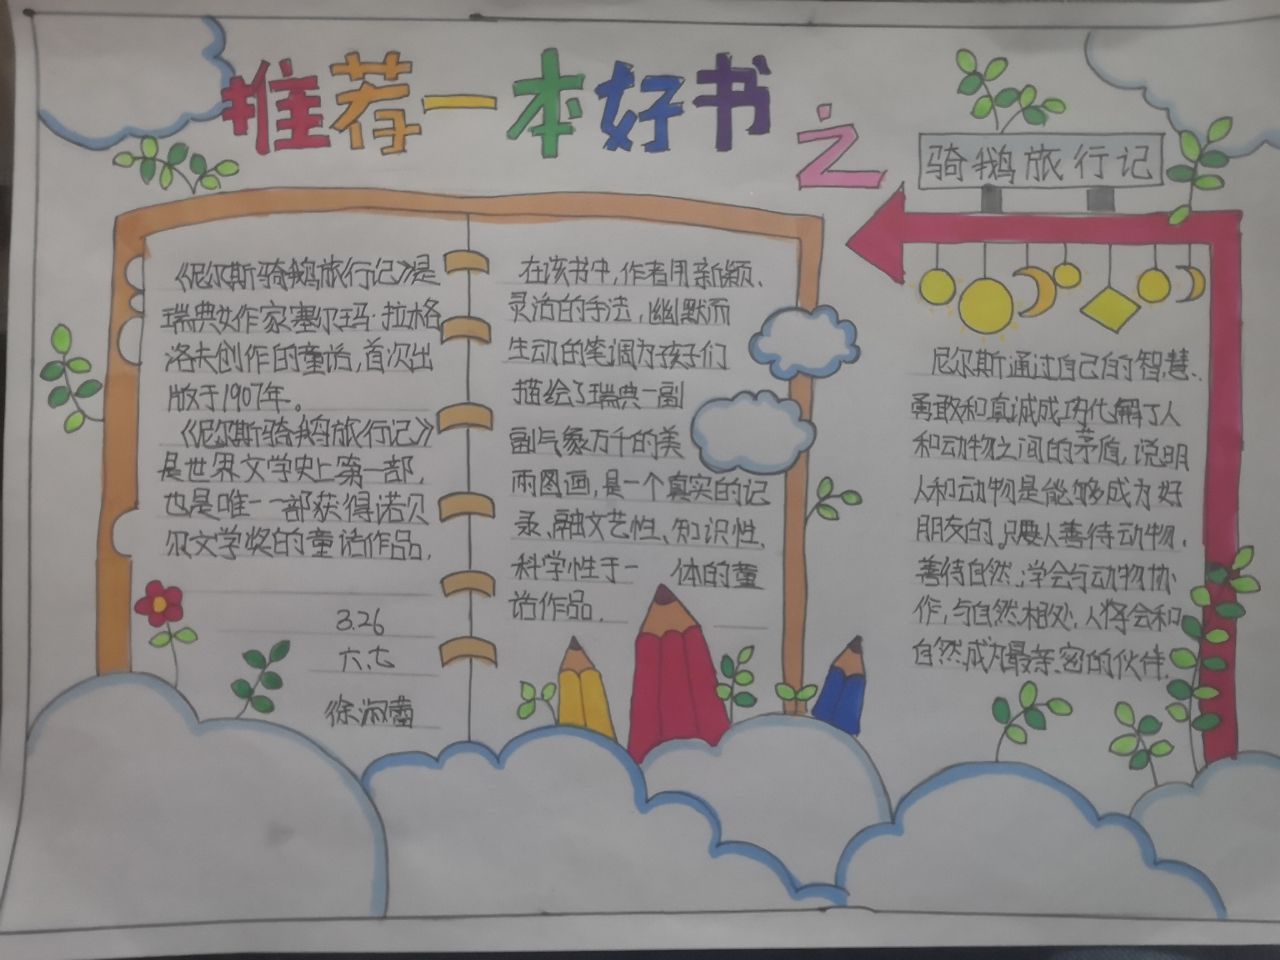 推荐一本好书
之
骑鹅旅行记
《尼尔斯骑鹅旅行记》是
瑞典女作家塞尔玛·拉格
洛夫创作的童话,首次出
版于1907年。
《尼尔斯骑鹅旅行记》
是世界文学史上第一部,
也是唯一一部获得诺贝
尔文学奖的童话作品.
3.26
六.七
徐淑蕾
在该书中,作者用新颖、
灵活的手法,幽默而
生动的笔调为孩子们
描绘了瑞典一副
副气象万千的美
丽图画,是一个真实的记
录、融文艺性、知识性、
科学性于一 体的童
话作品.
尼尔斯通过自己的智慧、
勇敢和真诚成功化解了人
和动物之间的矛盾,说明
人和动物是能够成为好
朋友的.只要人善待动物、
善待自然;学会与动物协
作,与自然相处,人将会和
自然成为最亲密的伙伴.